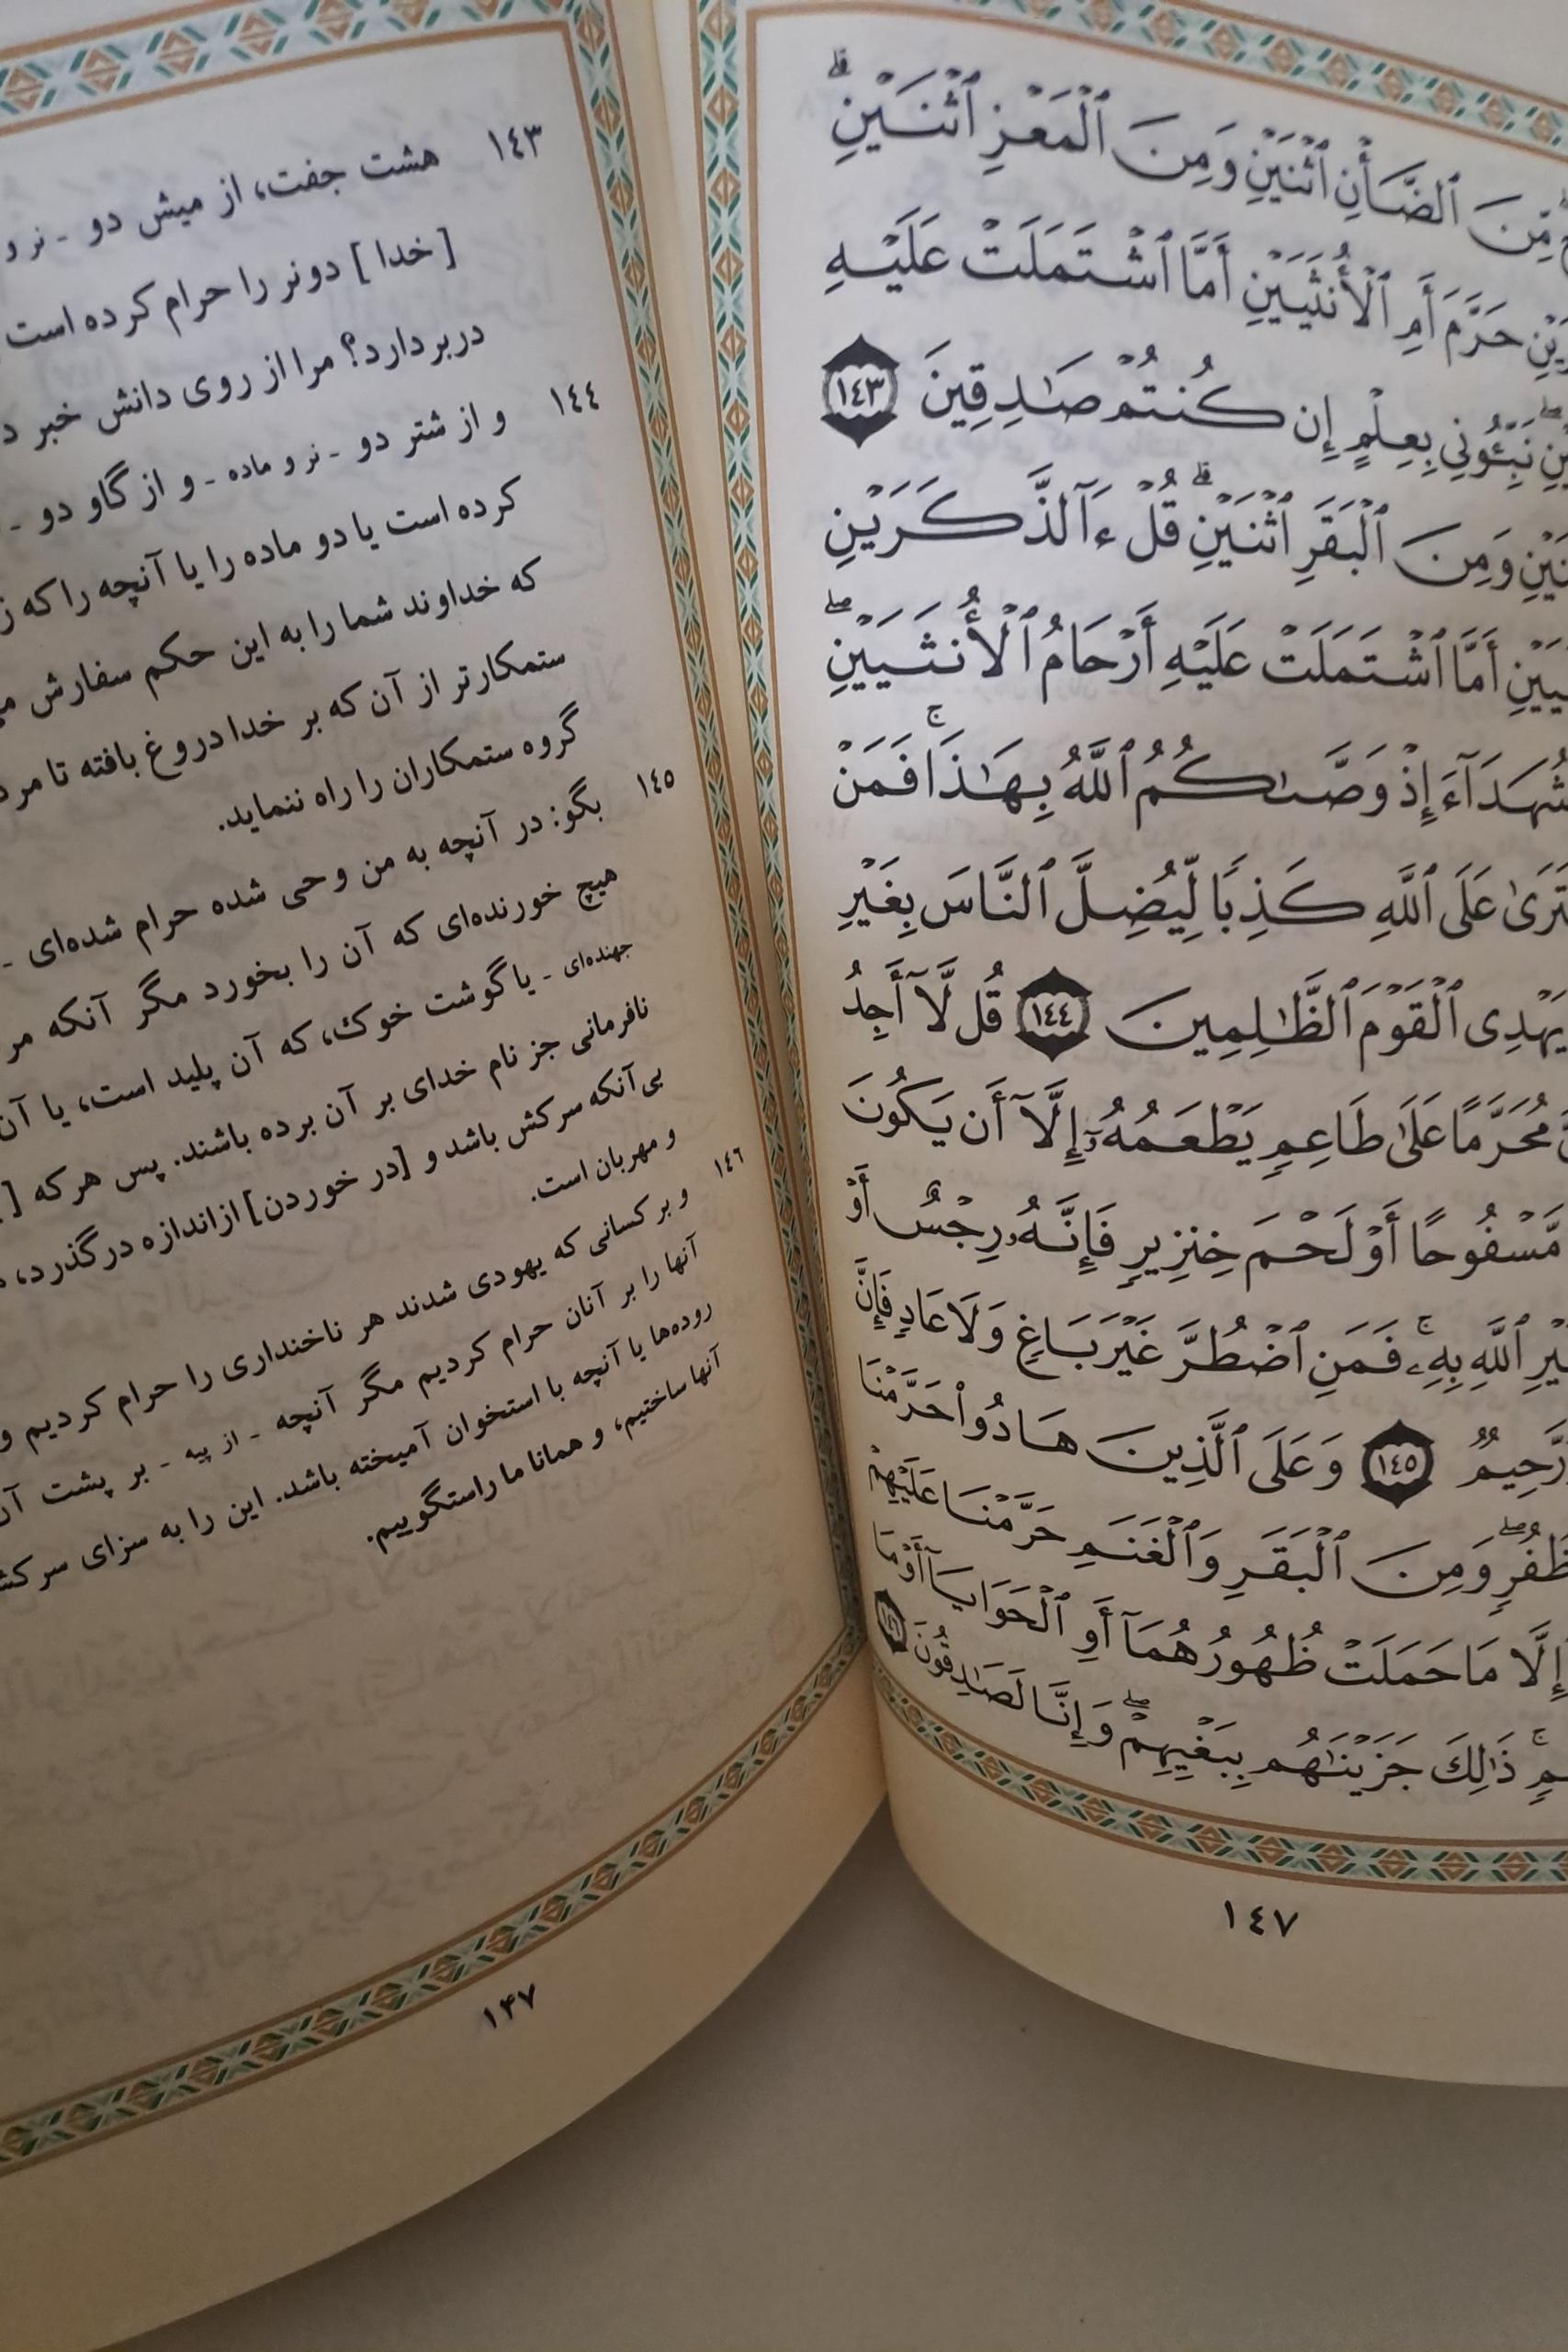 مِّنَ ٱلضَّأۡنِ ٱثۡنَيۡنِ وَمِنَ ٱلۡمَعۡزِ ٱثۡنَيۡنِۗ
حَرَّمَ أَمِ ٱلۡأُنثَيَيۡنِ أَمَّا ٱشۡتَمَلَتۡ عَلَيۡهِ
نَبِّـُٔونِي بِعِلۡمٍ إِن كُنتُمۡ صَٰدِقِينَ ١٤٣
وَمِنَ ٱلۡبَقَرِ ٱثۡنَيۡنِۗ قُلۡ ءَآلذَّكَرَيۡنِ
أَمَّا ٱشۡتَمَلَتۡ عَلَيۡهِ أَرۡحَامُ ٱلۡأُنثَيَيۡنِۖ
شُهَدَآءَ إِذۡ وَصَّىٰكُمُ ٱللَّهُ بِهَٰذَاۚ فَمَنۡ
عَلَى ٱللَّهِ كَذِبٗا لِّيُضِلَّ ٱلنَّاسَ بِغَيۡرِ
يَهۡدِي ٱلۡقَوۡمَ ٱلظَّٰلِمِينَ ١٤٤ قُل لَّآ أَجِدُ
مُحَرَّمًا عَلَىٰ طَاعِمٖ يَطۡعَمُهُۥٓ إِلَّآ أَن يَكُونَ
مَّسۡفُوحًا أَوۡ لَحۡمَ خِنزِيرٖ فَإِنَّهُۥ رِجۡسٌ أَوۡ
ٱللَّهِ بِهِۦۚ فَمَنِ ٱضۡطُرَّ غَيۡرَ بَاغٖ وَلَا عَادٖ فَإِنَّ
رَّحِيمٞ ١٤٥ وَعَلَى ٱلَّذِينَ هَادُواْ حَرَّمۡنَا
ظُفُرٖۖ وَمِنَ ٱلۡبَقَرِ وَٱلۡغَنَمِ حَرَّمۡنَا عَلَيۡهِمۡ
إِلَّا مَا حَمَلَتۡ ظُهُورُهُمَآ أَوِ ٱلۡحَوَايَآ أَوۡ مَا
ذَٰلِكَ جَزَيۡنَٰهُم بِبَغۡيِهِمۡۖ وَإِنَّا لَصَٰدِقُونَ ١٤٦
١٤٧
١٤٣ هشت جفت، از میش دو - نر و
[خدا] دو نر را حرام کرده است
دربر دارد؟ مرا از روی دانش خبر
١٤٤ و از شتر دو - نر و ماده - و از گاو دو -
کرده است یا دو ماده را یا آنچه را که
که خداوند شما را به این حکم سفارش
ستمکارتر از آن که بر خدا دروغ بافته تا
گروه ستمکاران را راه ننماید.
١٤٥ بگو: در آنچه به من وحی شده حرام شده‌ای -
هیچ خورنده‌ای که آن را بخورد مگر آنکه
جهنده‌ای - یا گوشت خوک، که آن پلید است، یا
نافرمانی جز نام خدای بر آن برده باشند. پس هر که [
بی‌آنکه سرکش باشد و [در خوردن] از اندازه درگذرد،
و مهربان است.
١٤٦ و بر کسانی که یهودی شدند هر ناخنداری را حرام کردیم و
آنها را بر آنان حرام کردیم مگر آنچه - از پیه - بر پشت
روده‌ها یا آنچه با استخوان آمیخته باشد. این را به سزای
آنها ساختیم، و همانا ما راستگوییم.
۱۴۷